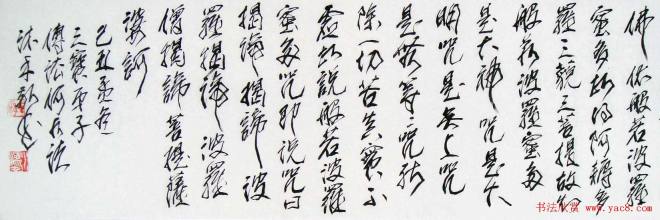 佛依般若波羅
蜜多故得阿耨多
羅三藐三菩提故知
般若波羅蜜多
是大神咒是大
明咒是無上咒
是無等等咒能
除一切苦真實不
虛故說般若波羅
蜜多咒即說咒曰
揭諦揭諦波
羅揭諦波羅
僧揭諦菩提薩
婆訶
己丑孟夏
三寶弟子
书法欣赏 www.yac8.com